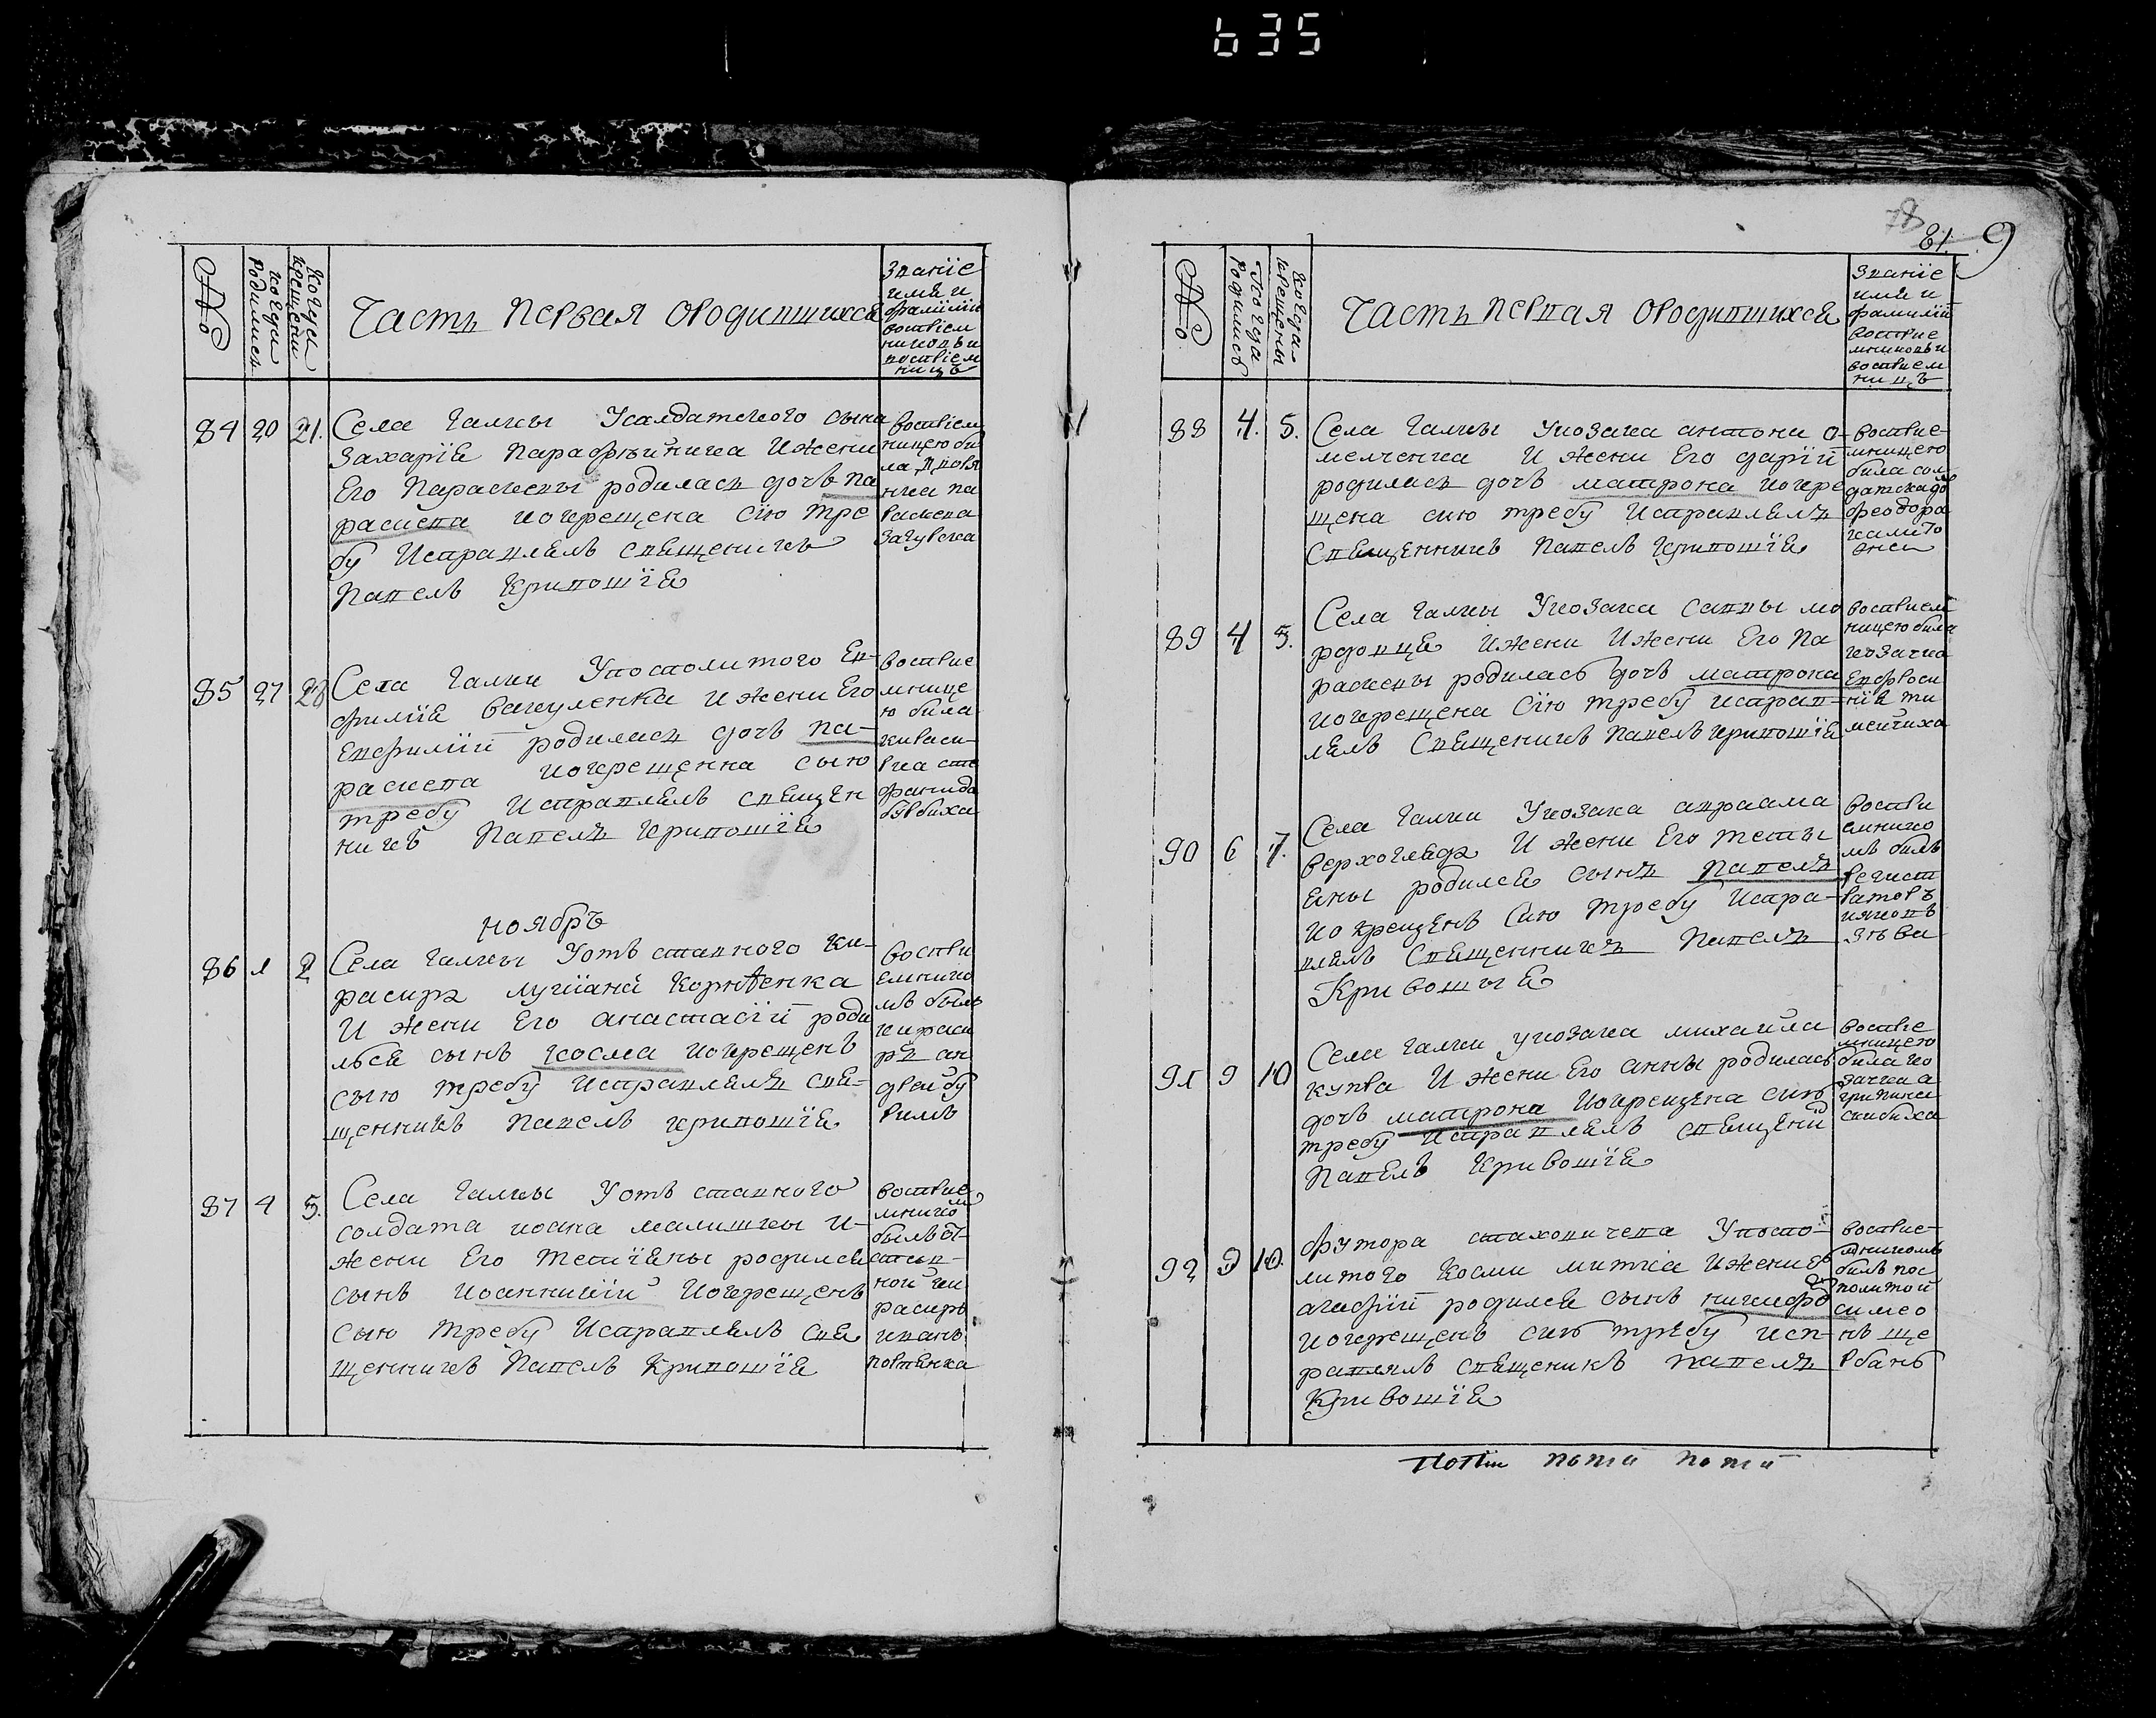 635
№
когда родились
когда крещени
Часть первая ородившихся
Званіе
имя и
фамилія
воспріем
никовъ и
воспріем
ницъ
84 20 21.
Села Галки Усалдатского сына
Захарія Парафѣйника И жени
Его Параскевы родилась дочъ Па
раскева иокрещена Сію тре
бу Исправлялъ Священикъ
Павелъ Кривошія
воспріем
ницею би
ла
Раскева
85 27 28
Села Галки Упосполитого Ев-
фимія Вакуленка И жени Его
Евфимій родилась дочъ Па-
раскева иокрещенна сыю
требу Исправлялъ Священ
никъ Павелъ Кривошія
воспріе
мнице
ю била
кираси-
рка сте
фанида
ноябръ
86 1 2
Села Галки Уотъ ставного Ки-
расира лукіана Корнѣенка
И жени Его анастасій роди
лься сынъ Косма иокрещенъ
сыю требу Исправлялъ Свя-
щенникъ Павелъ Кривошія
воспри
емнико
мъ былъ
кираси
ръ ан
дрей бу
римъ
87 4 5.
Села Галки Уотъ ставного
солдата иоана малишки И-
жени Его Тетіяны родился
сынъ Иоанникій Иокрещенъ
сыю требу Исправлялъ Свя
щенникъ Павелъ Кривошія
воспріе
мнико
былъ от-
став-
ной ки
расиръ
иванъ
78
81.
9
№
когда родились
когда крещены
Часть первая ородившихся
Званіе
имя и
фамилій
воспріе
мниковъ и
воспріем
ницъ
88 4. 5.
Села Галки Укозака антона о-
мелченка И жени Его дарій
родилась дочъ матрона иокре
щена сию требу Исправлялъ
Священникъ Павелъ Кривошія
воспріе
мницею
била сол
датска
феодора
89 4 5.
Села Галки Укозака Саввы мо
рдовца И жени И жени Его Па
раскевы родилась дочъ матрона
иокрещена Сію требу исправ-
лялъ Священикъ Павелъ Кривошія
воспріем
ницею била
козачка
Евфроси
нія ти
90 6 7.
Села Галки Укозака авраама
Верхогляда И жени Его тетьі
яны родился сынъ Павелъ
иокрещенъ Сию требу Испра-
влялъ Священникъ Павелъ
Кривошыя
воспри
емнико
мъ билъ
регист
раторъ
91 9 10
Села Галки укозака михайла
И жени Его анны родилась
дочъ матрона Иокрещена сию
требу Исправлялъ Священи
Павелъ Кривошія
воспріе
мницею
била ко
зачка а
грипина
92 9 10.
футора Упоспо-
литого Косми И жени его
агафій родился сынъ никифо
иокрещенъ сию требу исп-
равлялъ Священикъ Павелъ
Кривошія
воспріе-
мникомъ
билъ пос
политой
симео
нъ ще
рбанъ